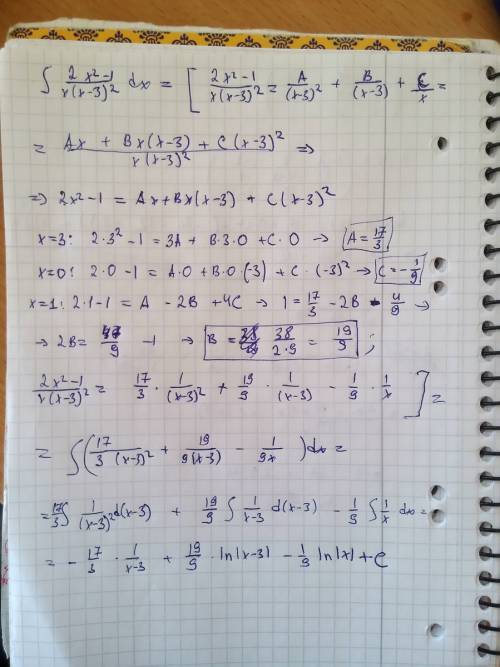 ∫ (2x²-1)/(x(x-3)²) dx = [ (2x²-1)/(x(x-3)²) = A/(x-3)² + B/(x-3) + C/x =
= (Ax + Bx(x-3) + C(x-3)²)/(x(x-3)²) ⇒
⇒ 2x²-1 = Ax+Bx(x-3) + C(x-3)²
x=3: 2·3²-1 = 3A + B·3·0 + C·0 → A = 17/3
x=0: 2·0-1 = A·0 + B·0·(-3) + C·(-3)² → C = -1/9
x=1: 2·1-1 = A - 2B + 4C → 1 = 17/3 - 2B - 4/9 →
→ 2B = 47/9 - 1 → B = 38/(2·9) = 19/9 ;
(2x²-1)/(x(x-3)²) = 17/3 · 1/(x-3)² + 19/9 · 1/(x-3) - 1/9 · 1/x ] =
= ∫( 17/(3(x-3)²) + 19/(9(x-3)) - 1/(9x) )dx =
= 17/3 ∫ 1/(x-3)² d(x-3) + 19/9 ∫ 1/(x-3) d(x-3) - 1/9 ∫ 1/x dx =
= - 17/3 · 1/(x-3) + 19/9 · ln|x-3| - 1/9 ln|x| + C